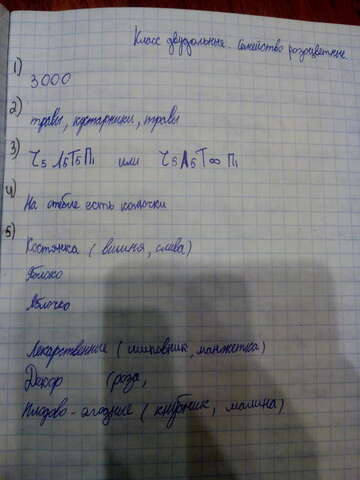 Класс двудольные. Семейство розоцветные
1)
3000
2)
травы, кустарники, травы
3)
Ч5 Л5Т5П1 или Ч5Л5Т∞П1
4)
На стебле есть колючки
5)
Костянка (вишня, слива)
Яблоко
Яблочко
Лекарственные (шиповник, манжетка)
Декор (роза,
Плодово-ягодные (клубник, малина)